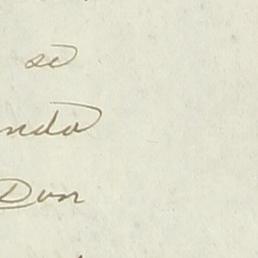 se
ndo
Don